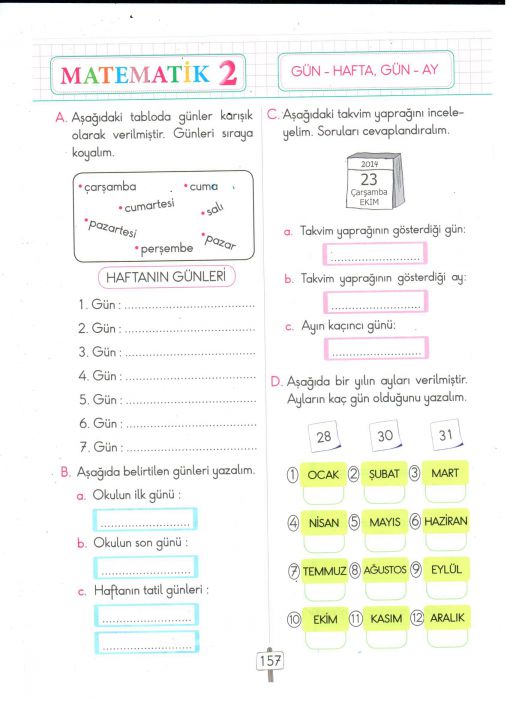 MATEMATİK 2
GÜN - HAFTA, GÜN - AY
A. Aşağıdaki tabloda günler karışık
olarak verilmiştir. Günleri sıraya
koyalım.
• çarşamba
• cuma
• cumartesi
• salı
• pazartesi
• perşembe
• pazar
HAFTANIN GÜNLERİ
1. Gün : ..............................
2. Gün : ..............................
3. Gün : ..............................
4. Gün : ..............................
5. Gün : ..............................
6. Gün : ..............................
7. Gün : ..............................
B. Aşağıda belirtilen günleri yazalım.
a. Okulun ilk günü :
..............................
b. Okulun son günü :
..............................
c. Haftanın tatil günleri :
..............................
..............................
C. Aşağıdaki takvim yaprağını incele-
yelim. Soruları cevaplandıralım.
2014
23
Çarşamba
EKİM
a. Takvim yaprağının gösterdiği gün:
..............................
b. Takvim yaprağının gösterdiği ay:
..............................
c. Ayın kaçıncı günü:
..............................
D. Aşağıda bir yılın ayları verilmiştir.
Ayların kaç gün olduğunu yazalım.
28 30 31
1 OCAK 2 ŞUBAT 3 MART
4 NİSAN 5 MAYIS 6 HAZİRAN
7 TEMMUZ 8 AĞUSTOS 9 EYLÜL
10 EKİM 11 KASIM 12 ARALIK
157